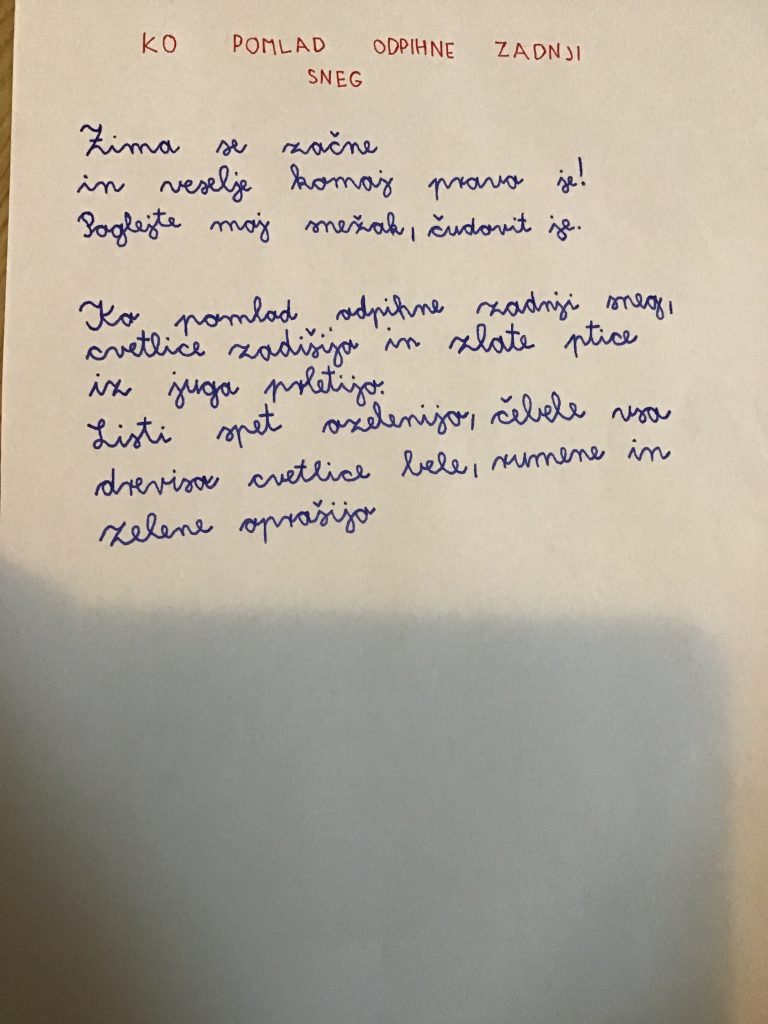 KO POMLAD ODPIHNE ZADNJI
SNEG
Zima se začne
in veselje komaj pravo je!
Poglejte moj snežak, čudovit je.
Ko pomlad odpihne zadnji sneg,
cvetlice zadišijo in zlate ptice
iz juga prletijo.
Listi spet ozelenijo, čebele vsa
drevisa cvetlice bele, rumene in
zelene oprašijo